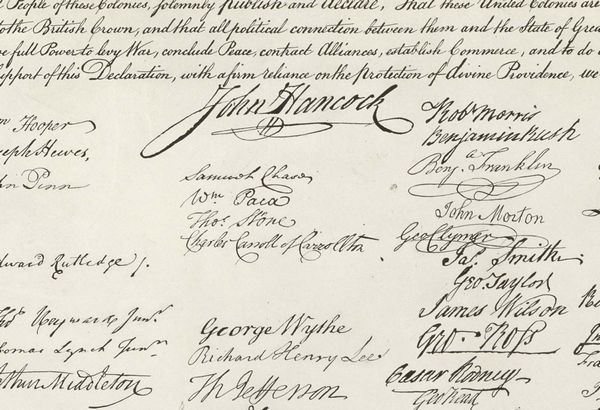 People of these Colonies, solemnly Publish and Declare, That these United Colonies are
to the British Crown, and that all political connection between them and the State of Grea
ve full Power to levy War, conclude Peace, contract Alliances, establish Commerce, and to do
upport of this Declaration, with a firm reliance on the Protection of divine Providence, we
John Hancock
Hooper
seph Hewes,
hn Penn
dward Rutledge /.
Thos Heyward Junr.
homas Lynch Junr.
rthur Middleton
Samuel Chase
Wm. Paca
Thos. Stone
Charles Carroll of Carrollton
George Wythe
Richard Henry Lee
Th Jefferson
Robt Morris
Benjamin Rush
Benja. Franklin
John Morton
Geo Clymer
Jas. Smith
Geo Taylor
James Wilson
Geo. Ross
Caesar Rodney
Geo Read